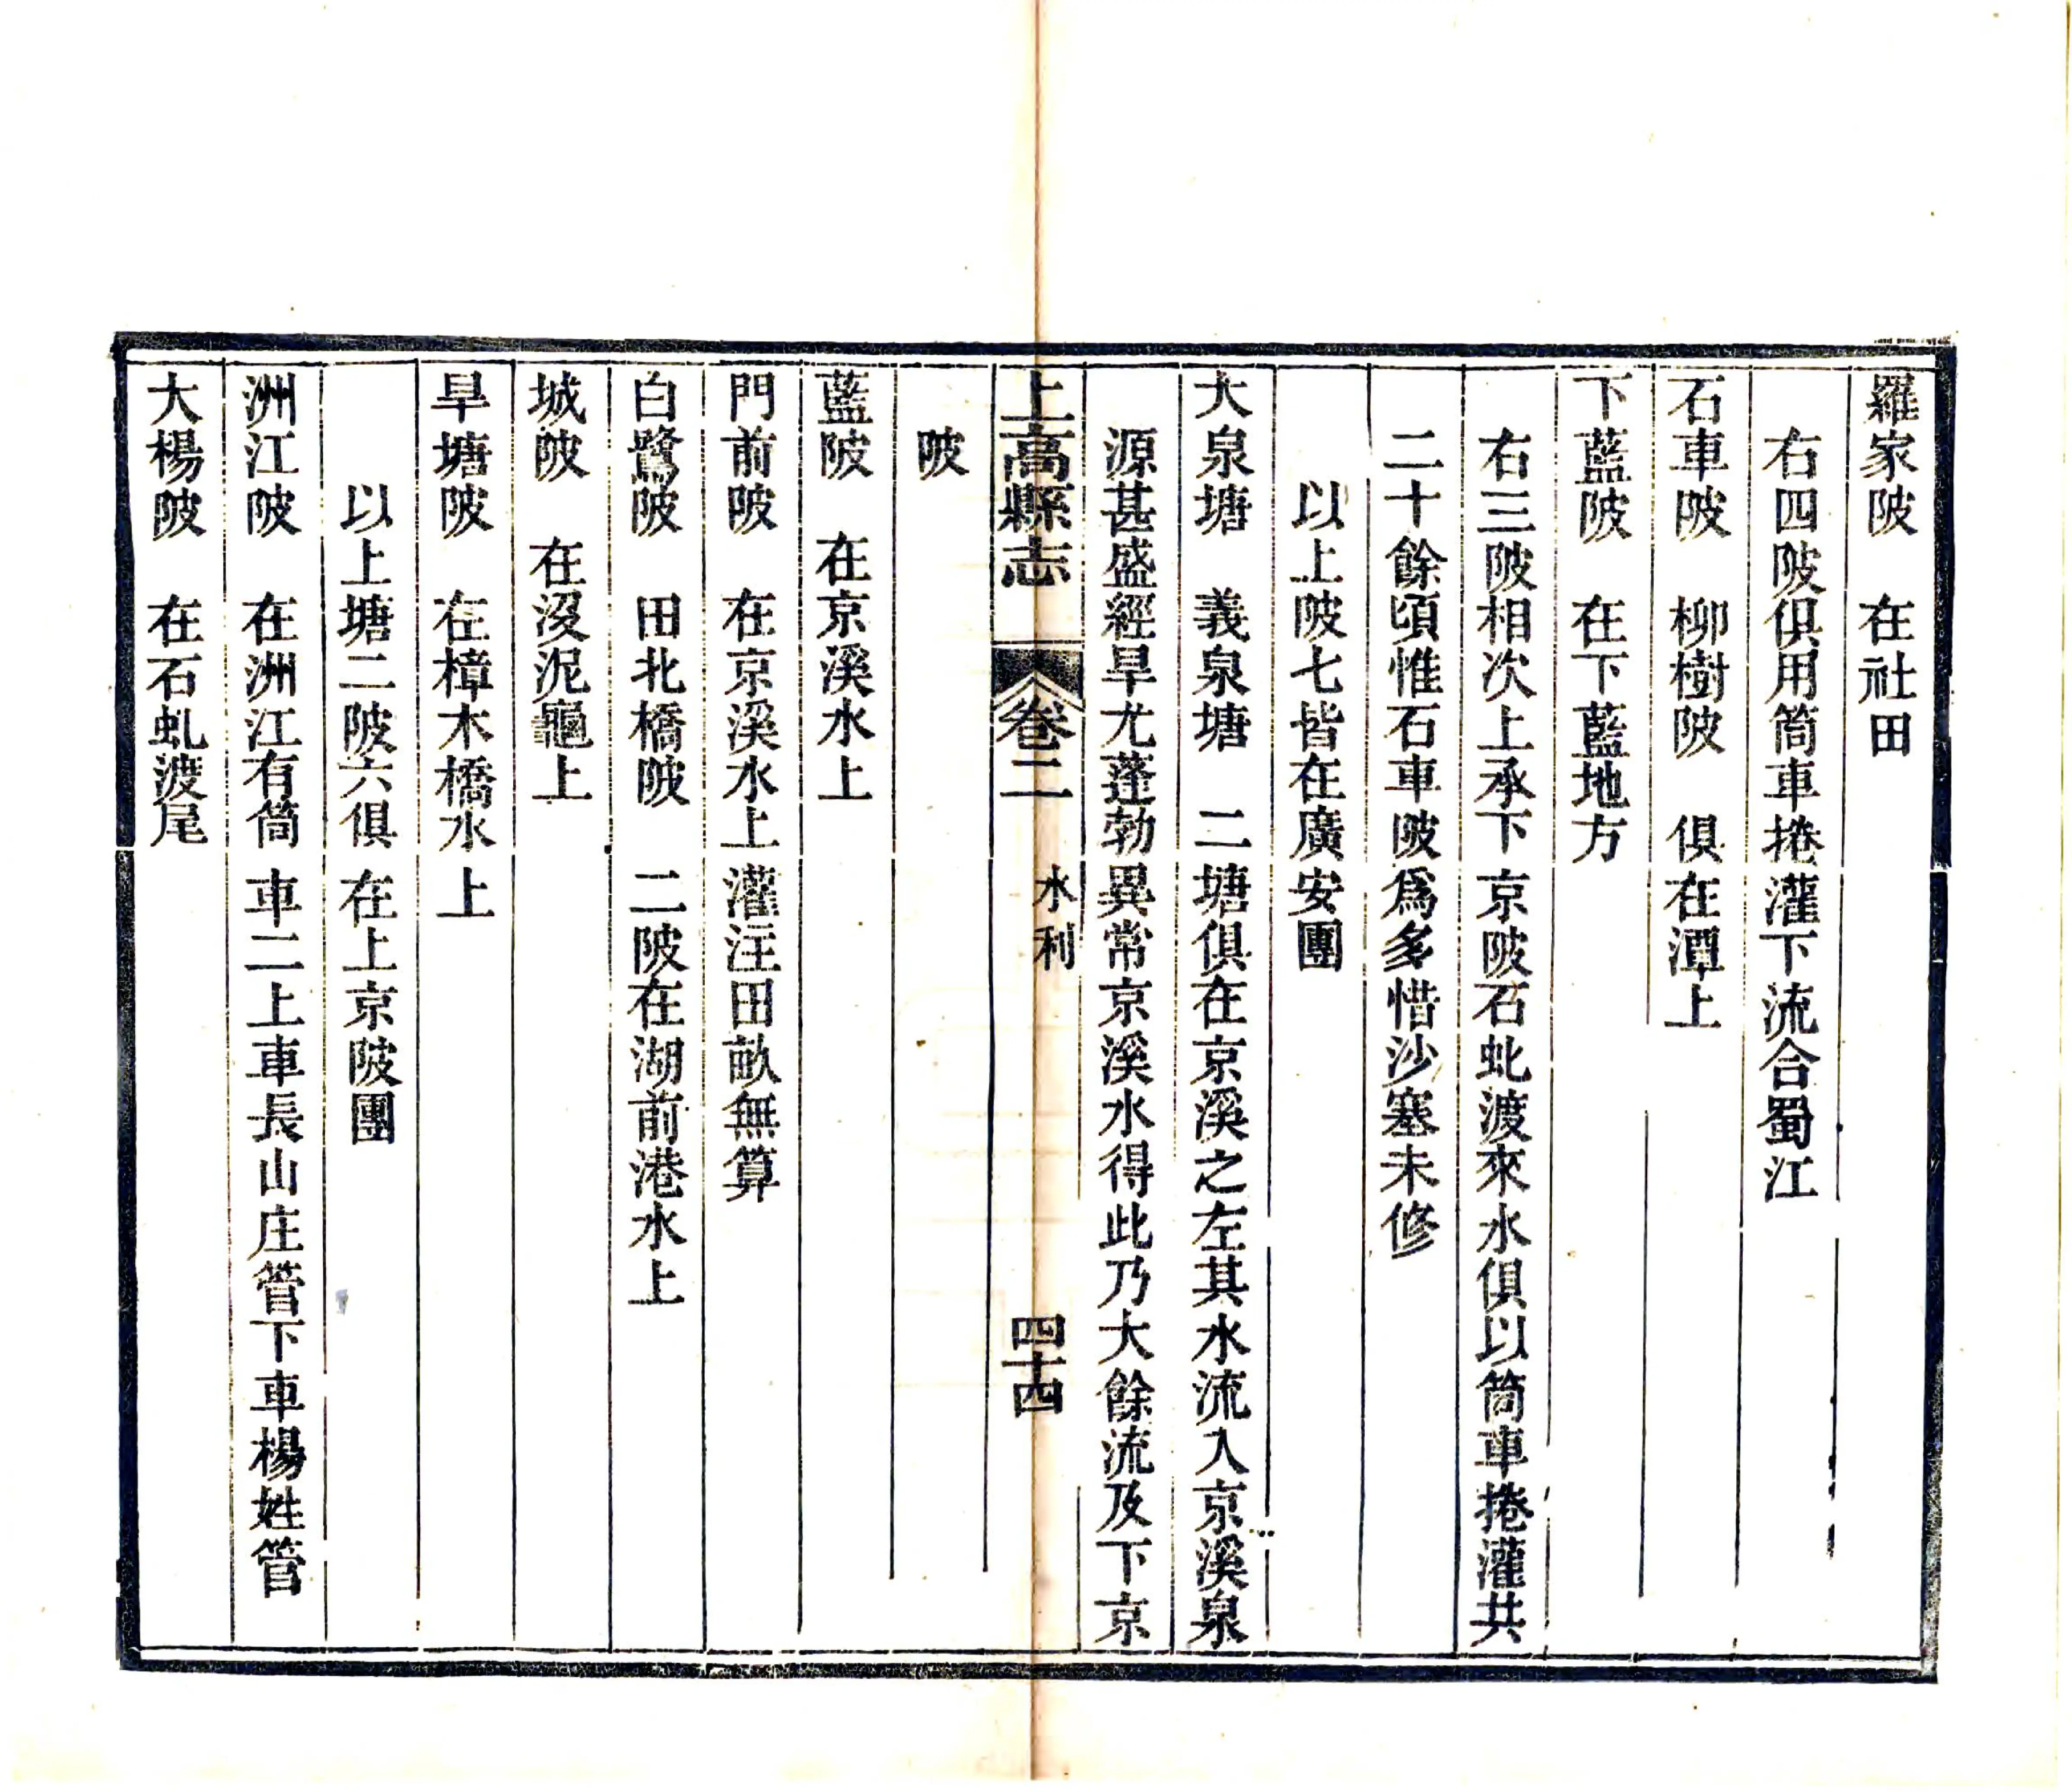 羅家陂　在社田
右四陂俱用筒車捲灌下流合蜀江
石車陂　柳樹陂　俱在潭上
下藍陂　在下藍地方
右三陂相次上承下京陂石虬渡來水俱以筒車捲灌共
二十餘頃惟石車陂爲多惜沙塞未修
以上陂七皆在廣安團
大泉塘　義泉塘　二塘俱在京溪之左其水流入京溪泉
源甚盛經旱尤蓬勃異常京溪水得此乃大餘流及下京
上高縣志　卷二　水利　四十四
陂
藍陂　在京溪水上
門前陂　在京溪水上灌注田畝無算
白鷺陂　田北橋陂　二陂在湖前港水上
城陂　在沒泥龜上
旱塘陂　在樟木橋水上
以上塘二陂六俱在上京陂團
洲江陂　在洲江有筒車二上車長山庄管下車楊姓管
大楊陂　在石虬渡尾